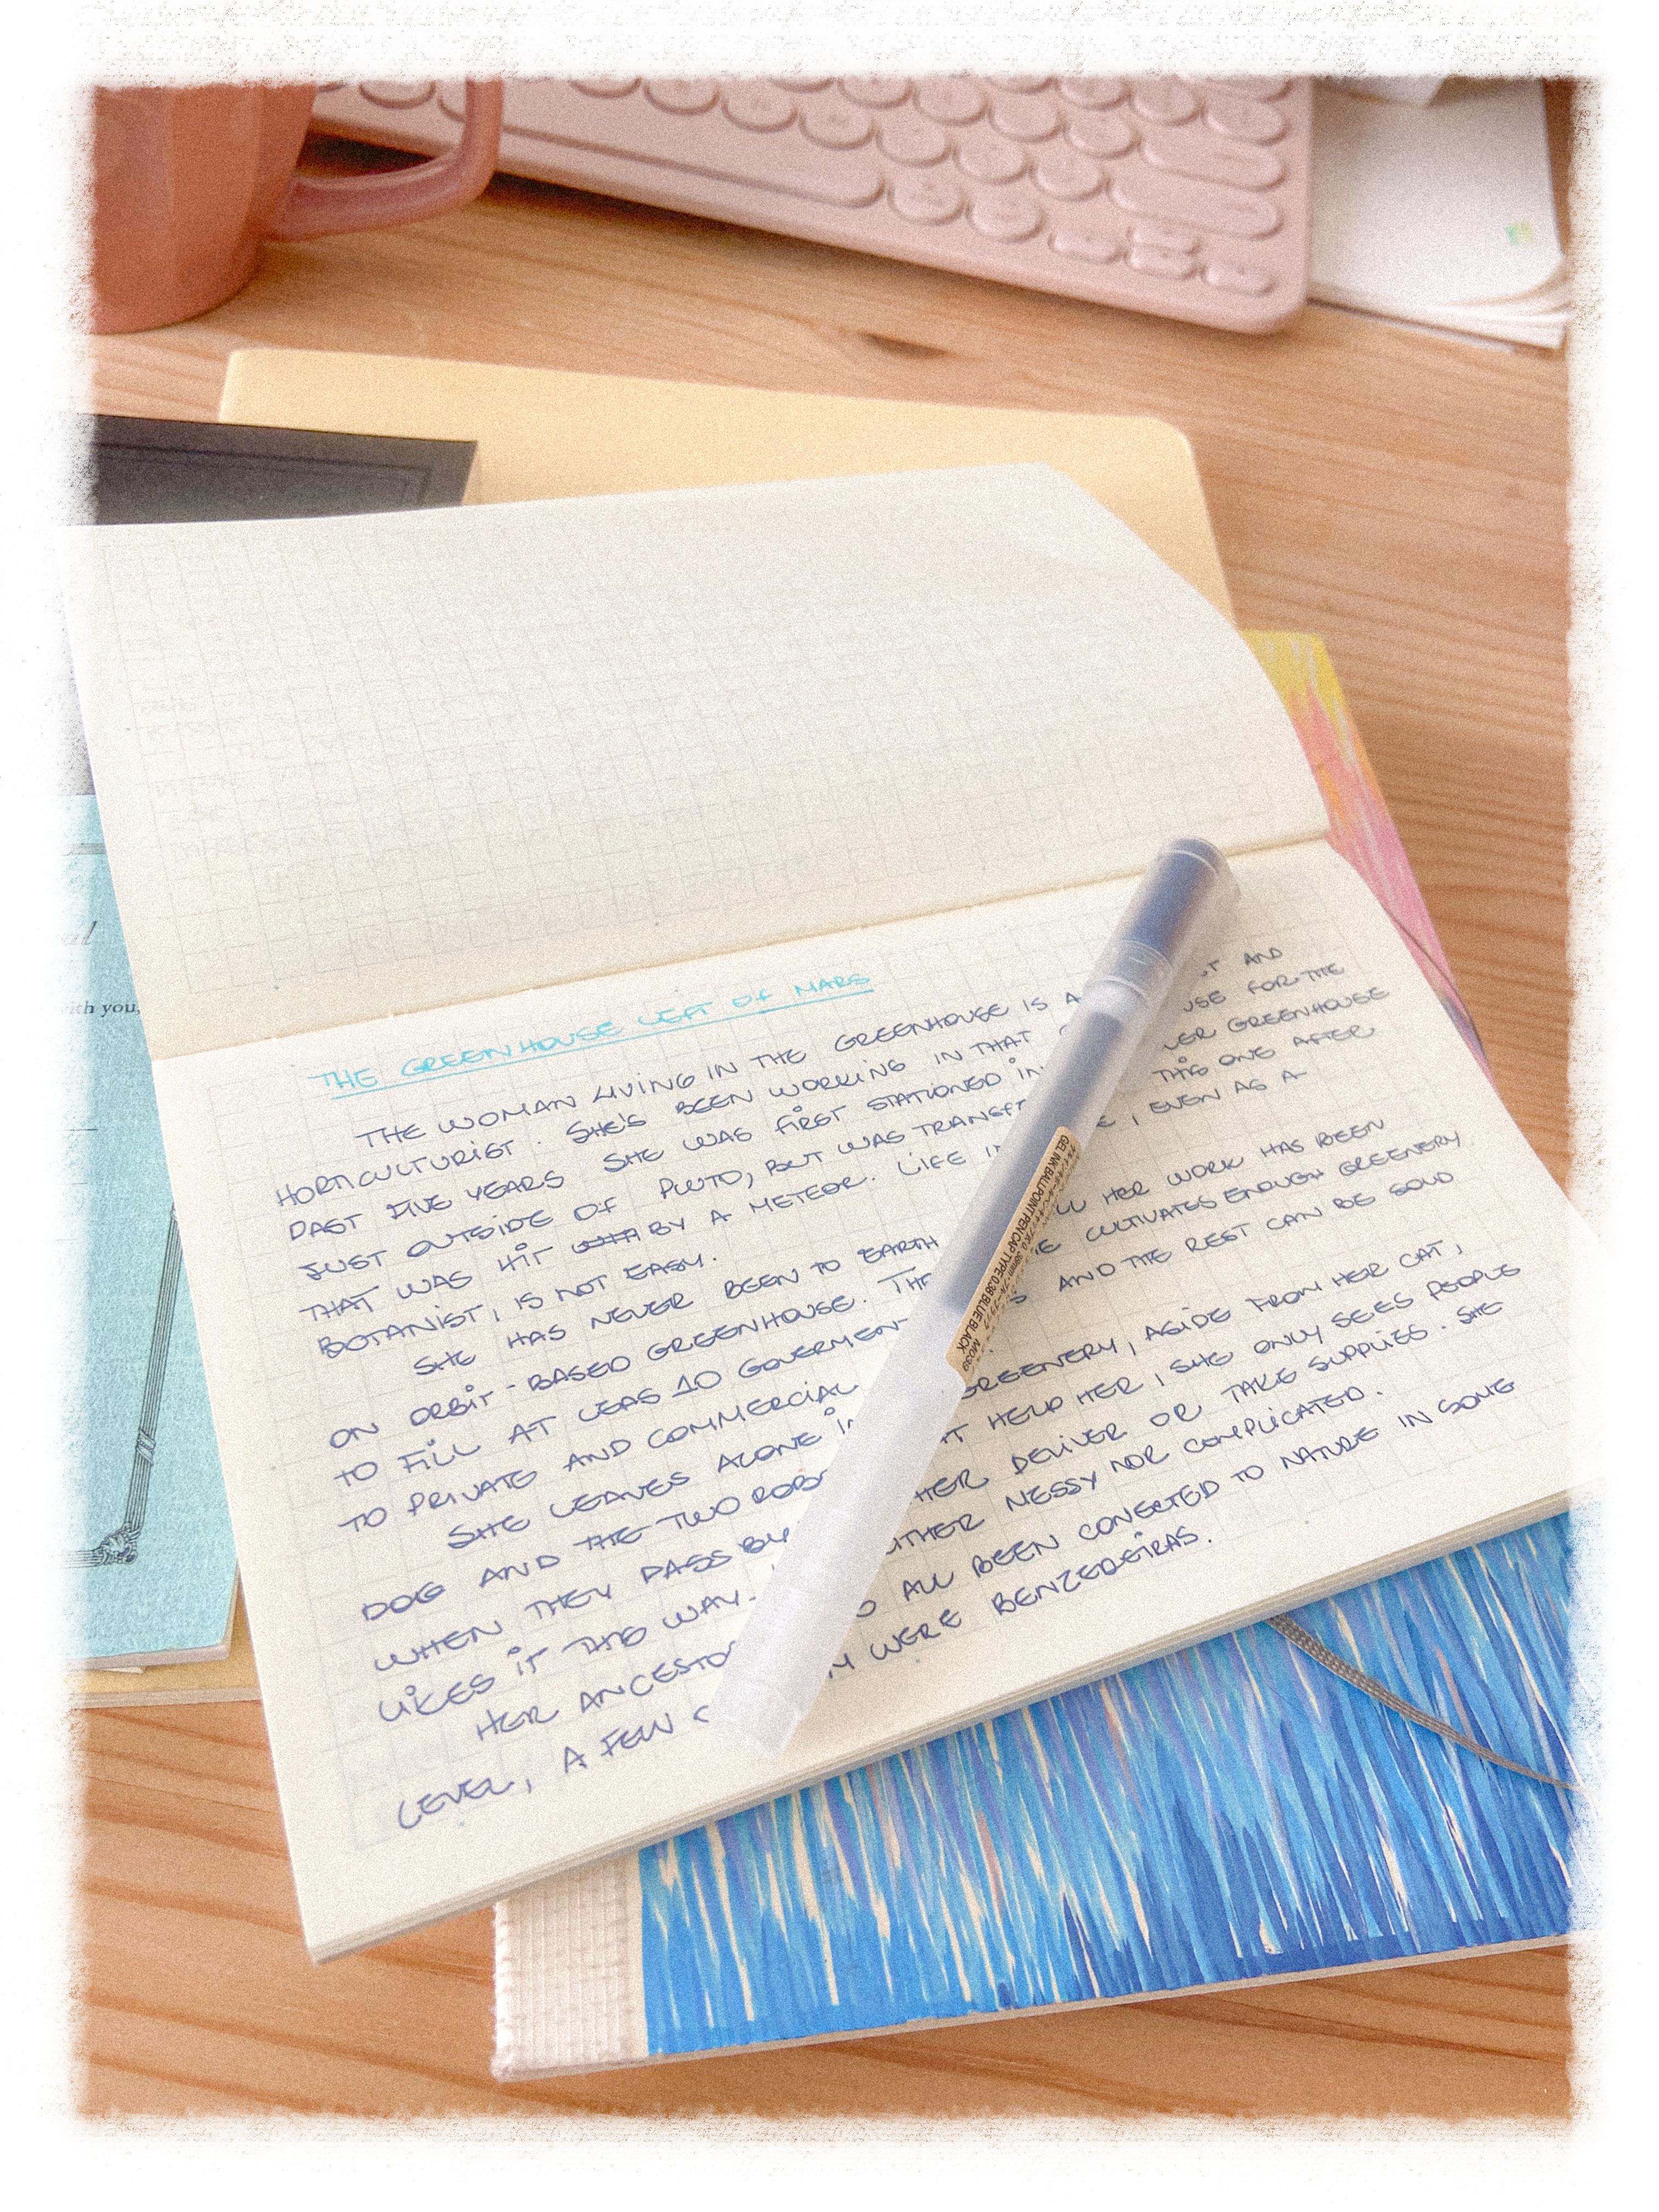 THE GREENHOUSE LEFT OF MARS
THE WOMAN LIVING IN THE GREENHOUSE IS A AND
HORTICULTURIST. SHE'S BEEN WORKING IN THAT FOR THE
PAST FIVE YEARS. SHE WAS FIRST STATIONED IN GREENHOUSE
JUST OUTSIDE OF PLUTO, BUT WAS THIS ONE AFTER
THAT WAS HIT BY A METEOR. LIFE , EVEN AS A
BOTANIST, IS NOT EASY.
SHE HAS NEVER BEEN TO EARTH HER WORK HAS BEEN
ON ORBIT-BASED GREENHOUSE. CULTIVATES ENOUGH GREENERY
TO FILL AT LEAS 10 GOVERMENT AND THE REST CAN BE SOLD
TO PRIVATE AND COMMERCIAL
SHE LEAVES ALONE GREENERY, ASIDE FROM HER CAT,
DOG AND THE TWO HELP HER, SHE ONLY SEES PEOPLE
WHEN THEY PASS BY DELIVER OR TAKE SUPPLIES. SHE
LIKES IT THIS WAY. MESSY NOR COMPLICATED.
HER ALL BEEN CONECTED TO NATURE IN SOME
LEVEL, A FEW WERE BENZEDEIRAS.
GEL INK BALLPOINT PEN CAP TYPE 0.38 BLUE BLACK
with you,